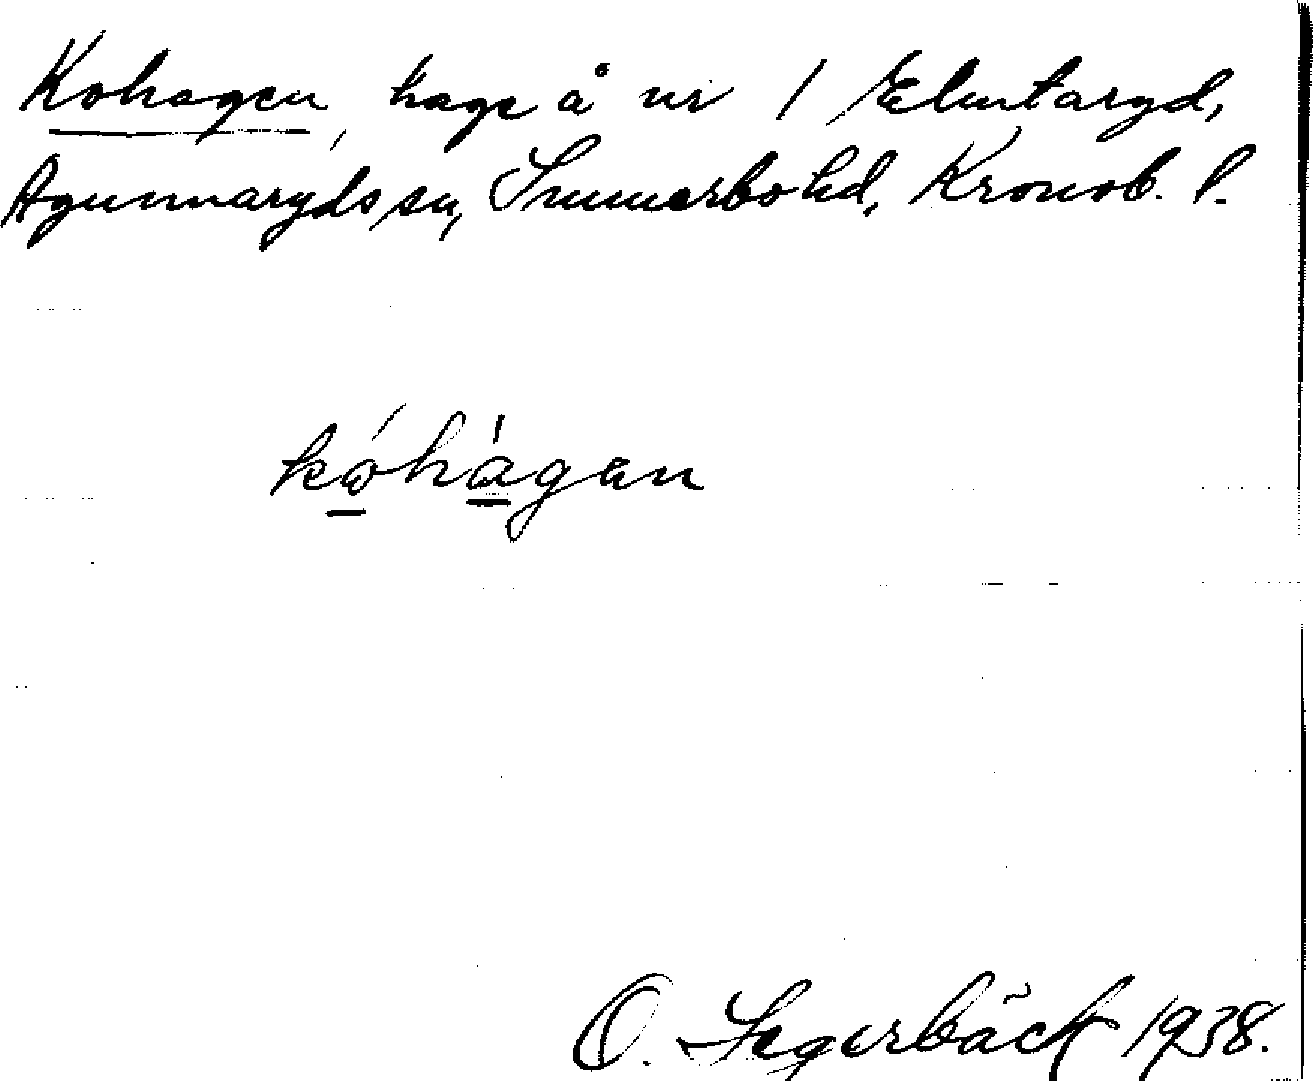 Kohagen, hage å nr 1 Elmtaryd,
Agunnaryds sn, Sunnerbo hd, Kronob. l.
kóhágen
O. Segerbäck 1938.